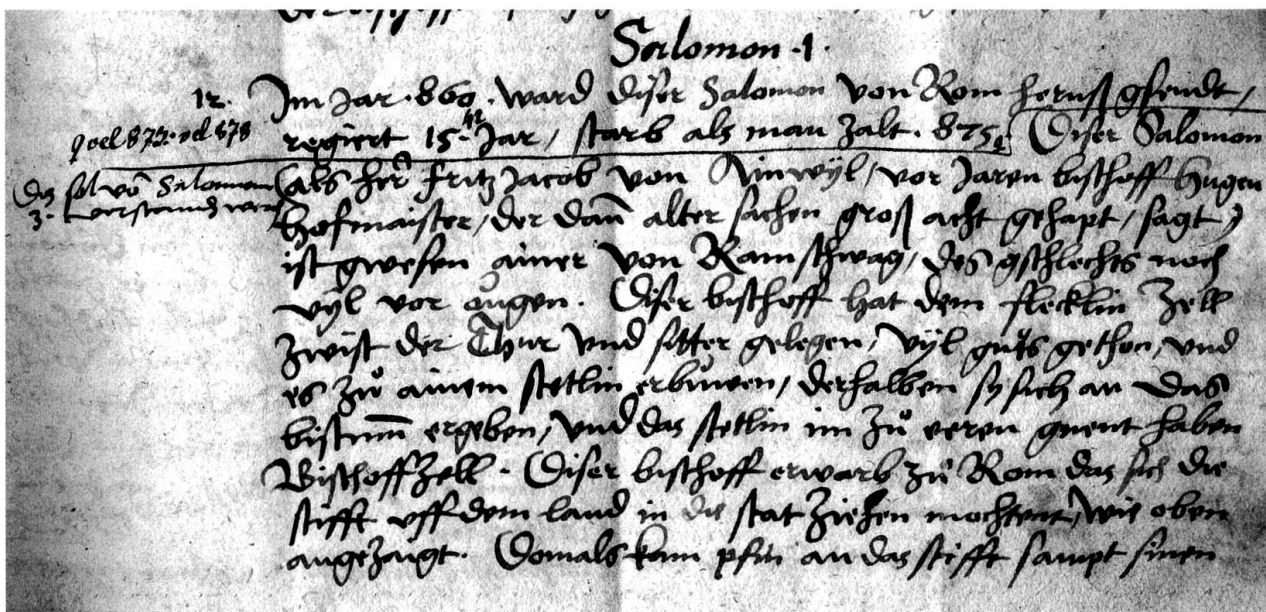 Salomon .1.
12. Im Jar .860. ward diser Salomon von Rom heruß gsendt,
vel 873. vel 878 regiert 15. Jar, starb als man zalt. 875. Diser Salomon
Das sol vō Salomon (als her Fritz Jacob von Ainwyl, vor Jaren bischoff Hugen
3. verstanden werden hofmaister, der dañ alter sachen groß acht gehapt, sagt)
ist gwesen ainer von Ramschwag, des gschlechts noch
vyl vor ougen. Diser bischoff hat dem flecklin Zell
zwist der Thur und sitter gelegen, vyl gůts gethon, und
es zů ainem stetlin erbuwen, derhalben sy sich an das
bistum̄ ergeben, und das stetlin im zů eeren gnent haben
Bischoffzell. Diser bischoff erwarb zů Rom das sich die
stifft uff dem land in die stat ziehen mochtent, wie oben
angezaigt. Domals kam pfin an das stifft sampt sinen